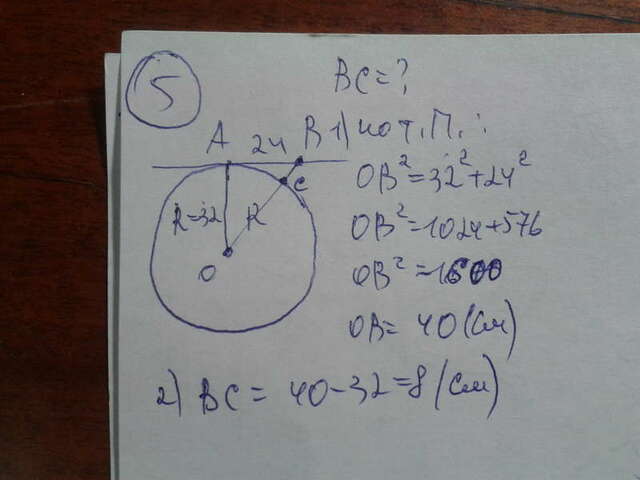 5
BC = ?
A 24 B 1) по т. П.:
C
OB² = 32² + 24²
R = 32 R
OB² = 1024 + 576
O
OB² = 1600
OB = 40 (см)
2) BC = 40 - 32 = 8 (см)